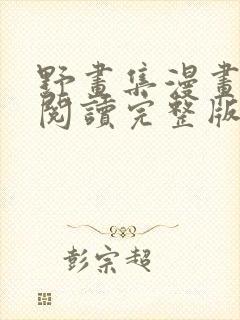 野畫集漫畫
閱讀完整版
彭宗超